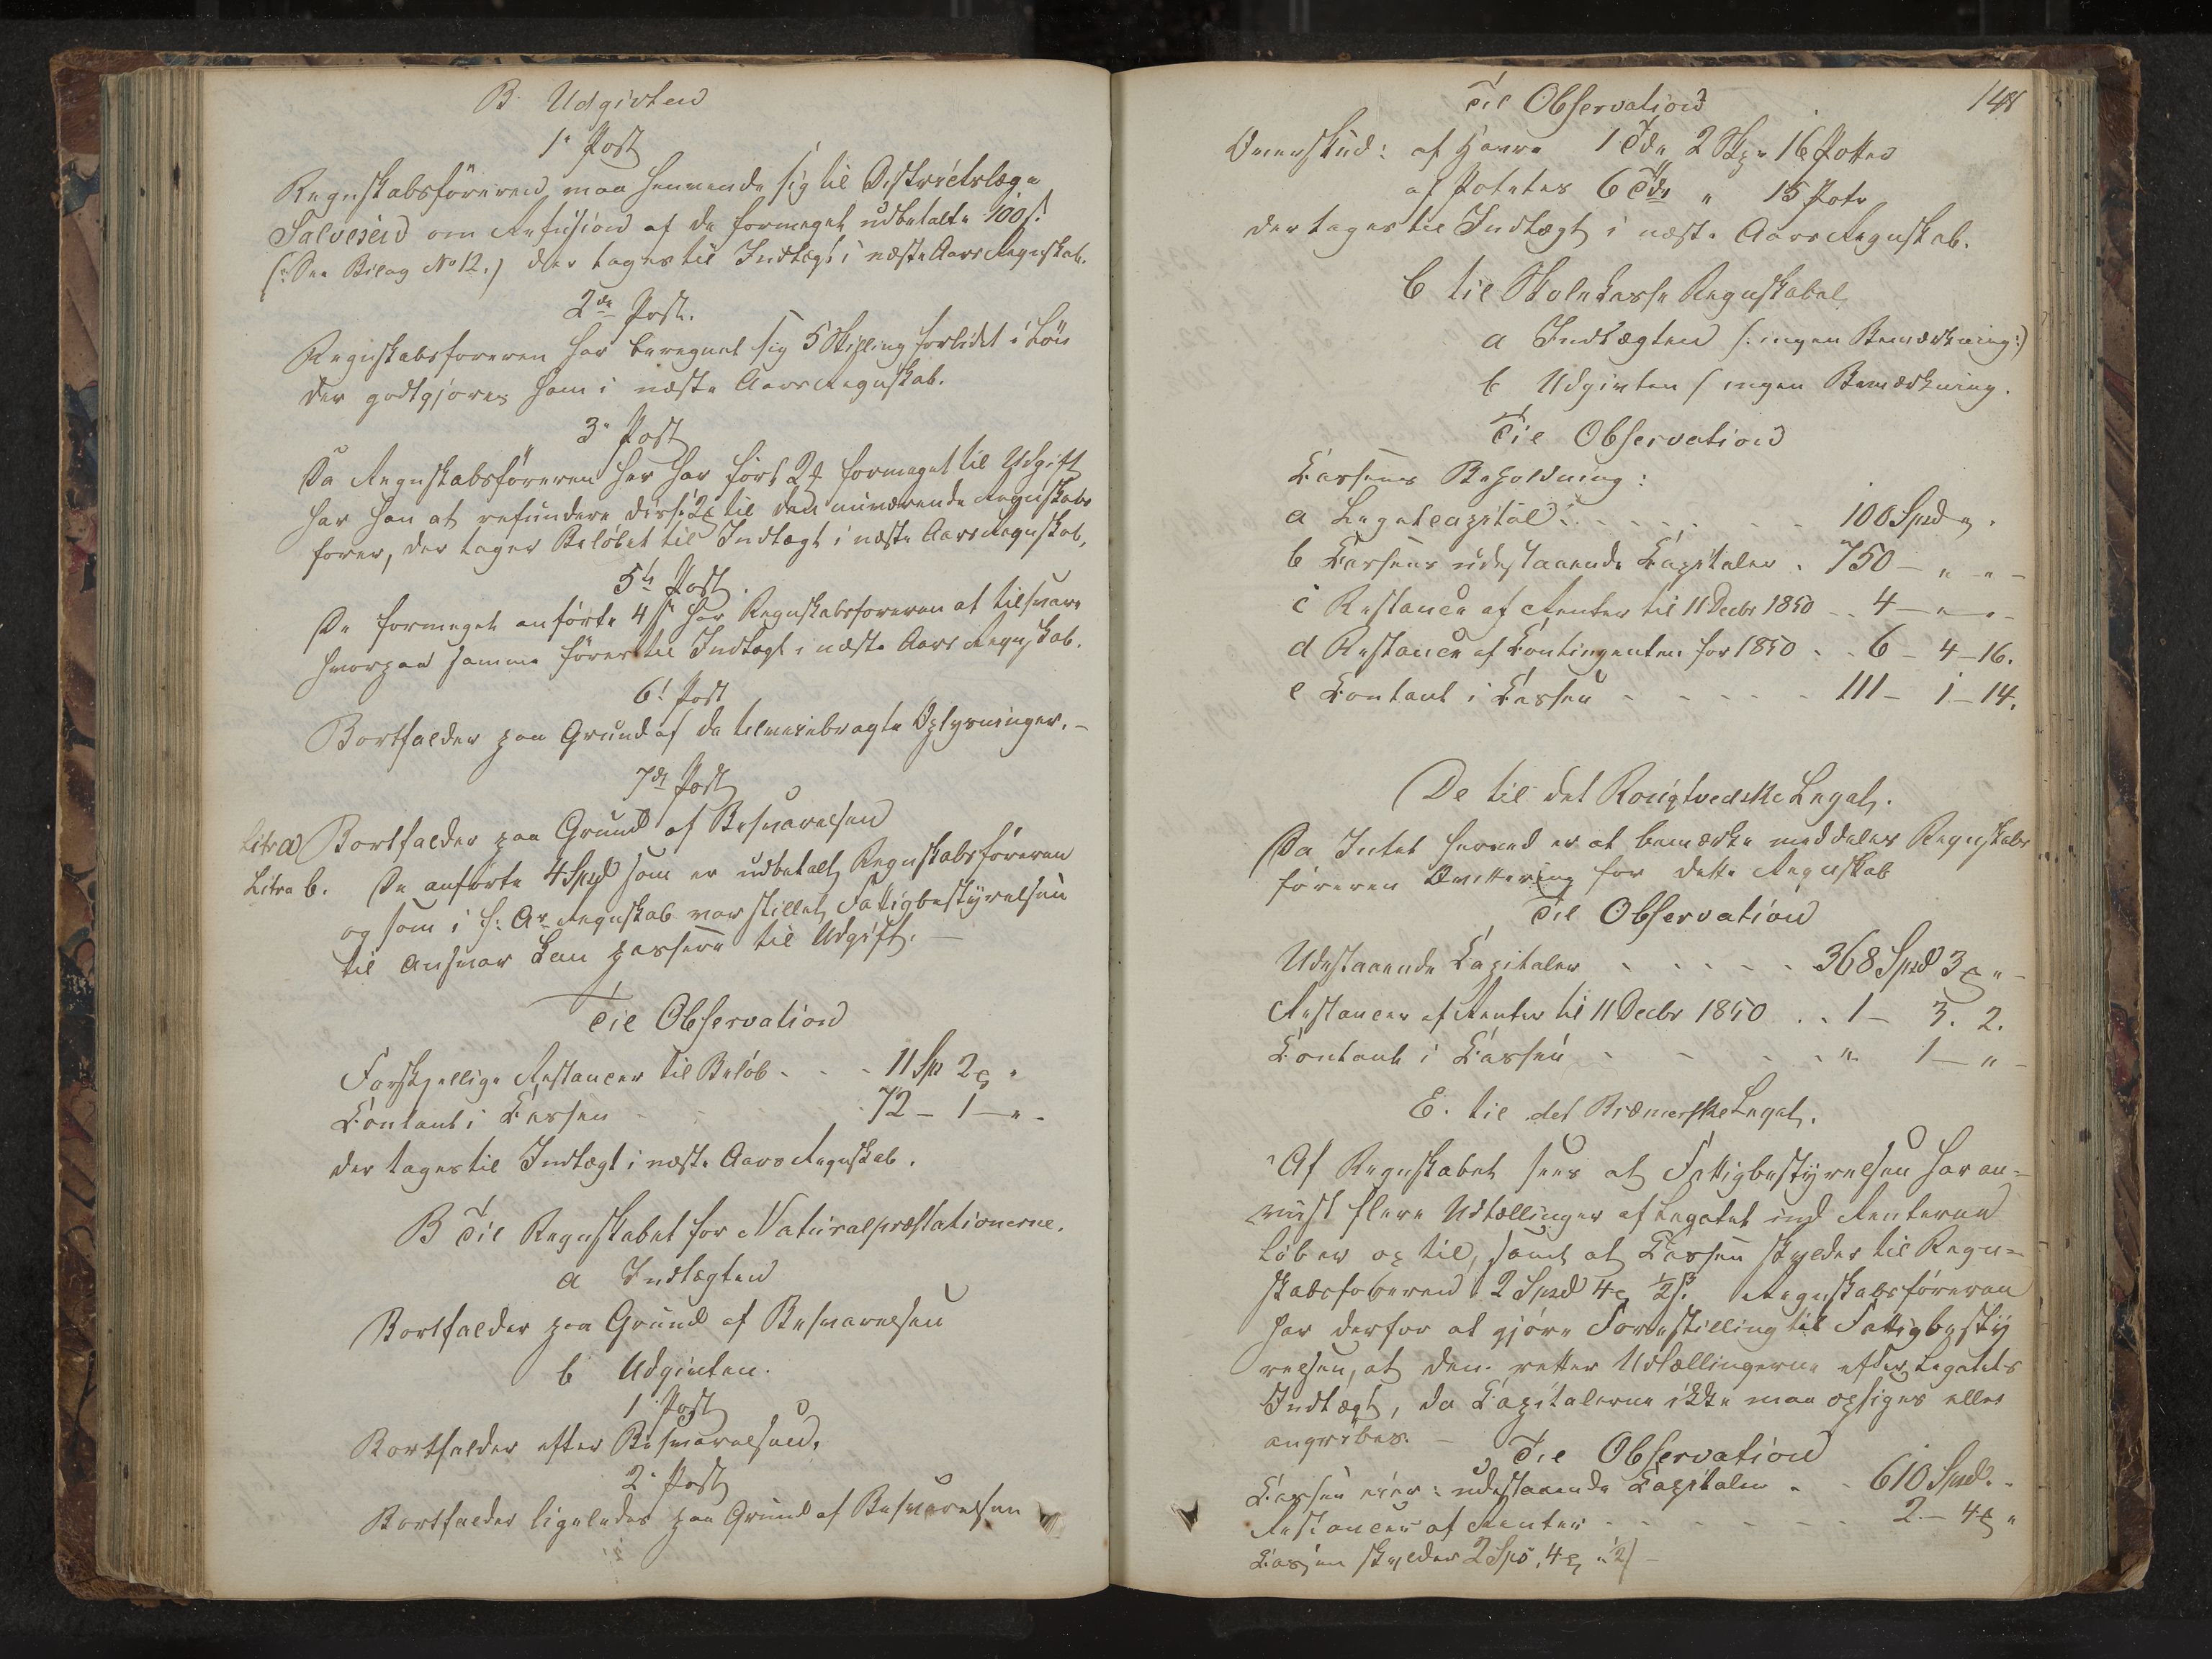 B Udgivten
1ste Post
Regnskabsføreren maa henvende sig til Districtslæge
Salvesen om Refusion af de formeget udbetalte 100 s.
(: See Bilag No 12.) der tages til Indtægt i næste Aars Regnskab.
2den Post.
Regnskabsføreren har beregnet sig 5 Skilling forlidet i Løn
der godtgjøres ham i næste Aars Regnskab.
3die Post
Da Regnskabsføreren her har ført 2 formeget til Udgift
har han at refundere disse 2 til den nuværende Regnskabs
fører, der tager Beløbet til Indtægt i næste Aars Regnskab,
5te Post.
De formeget anførte 4 s har Regnskabsføreren at tilsvare
hvorpaa samme føres til Indtægt i næste Aars Regnskab.
6te Post
Bortfalder paa Grund af de tilveiebragte Oplysninger. –
7de Post
Litr a Bortfalder paa Grund af Besvarelsen
Litra b. De anførte 4 Spd som er udbetalt Regnskabsføreren
og som i f: Ars Regnskab var stillet Fattigbestyrelsen
til Ansvar kan passere til Udgift. –
Til Observation
Forskjellige Restancer til Beløb - - - 11 Sp 2 "
Contant i Cassen - - 72 – 1 – " -
der tages til Indtægt i næste Aars Regnskab.
B Til Regnskabet for Naturalpræstationerne.
a Indtægten
Bortfalder paa Grund af Besvarelsen
b Udgivten.
1 Post
Bortfalder efter Besvarelsen.
2. Post
Bortfalder ligeledes paa Grund af Besvarelsen
148
Til Observation
Overskud: af Havre 1 Tde 2 Skp 16 Potter
af Poteter 6 Tdr " 15 Pottr
der tages til Indtægt i næste Aars Regnskab.
C til Skolekasse Regnskabet
a Indtægten (: ingen Bemærkning :)
b Udgivten ( ingen Bemærkning.
Til Observation
Cassens Beholdning:
a Legatcapital: - - - - - - 100 Spd " .
b Cassens udestaaende Capitaler . 750 – " " –
c Restance af Renter til 11 Decbr 1850 - - 4 – " -
d Restance af Contingenten for 1850 - - 6 – 4 – 16.
e Contant i Cassen - - - - - 111 – 1 – 14.
De til det Rongtvedske Legat.
Da Intet herved er at bemærke meddeles Regnskabs
føreren Qvittering for dette Regnskab
Til Observation
Udestaaende Capitaler - - - - - 368 Spd 3 " -
Restancer af Renter til 11 Decbr 1850 . . 1 – 3. 2.
Contant i Cassen - - - - " 1 – " -
E. til det Bræmerske Legat.
Af Regnskabet sees at Fattigbestyrelsen har an=
viist flere Udtællinger af Legatet end Renterne
løber op til, samt at Cassen skylder til Regn=
skabsføreren 2 Spd 4 ½ s. Regnskabsføreren
har derfor at gjøre Forestilling til Fattigbesty
relsen, at den retter Udtællingerne efter Legatets
Indtægt, da Capitalerne ikke maa opsiges eller
angribes. –
Til Observation
Cassen eier: udestaaende Capitaler - - 610 Spd. -
Restancer af Renter - - - - - - 2. – 4 "
Cassen skylder 2 Spd, 4 " ½ s –